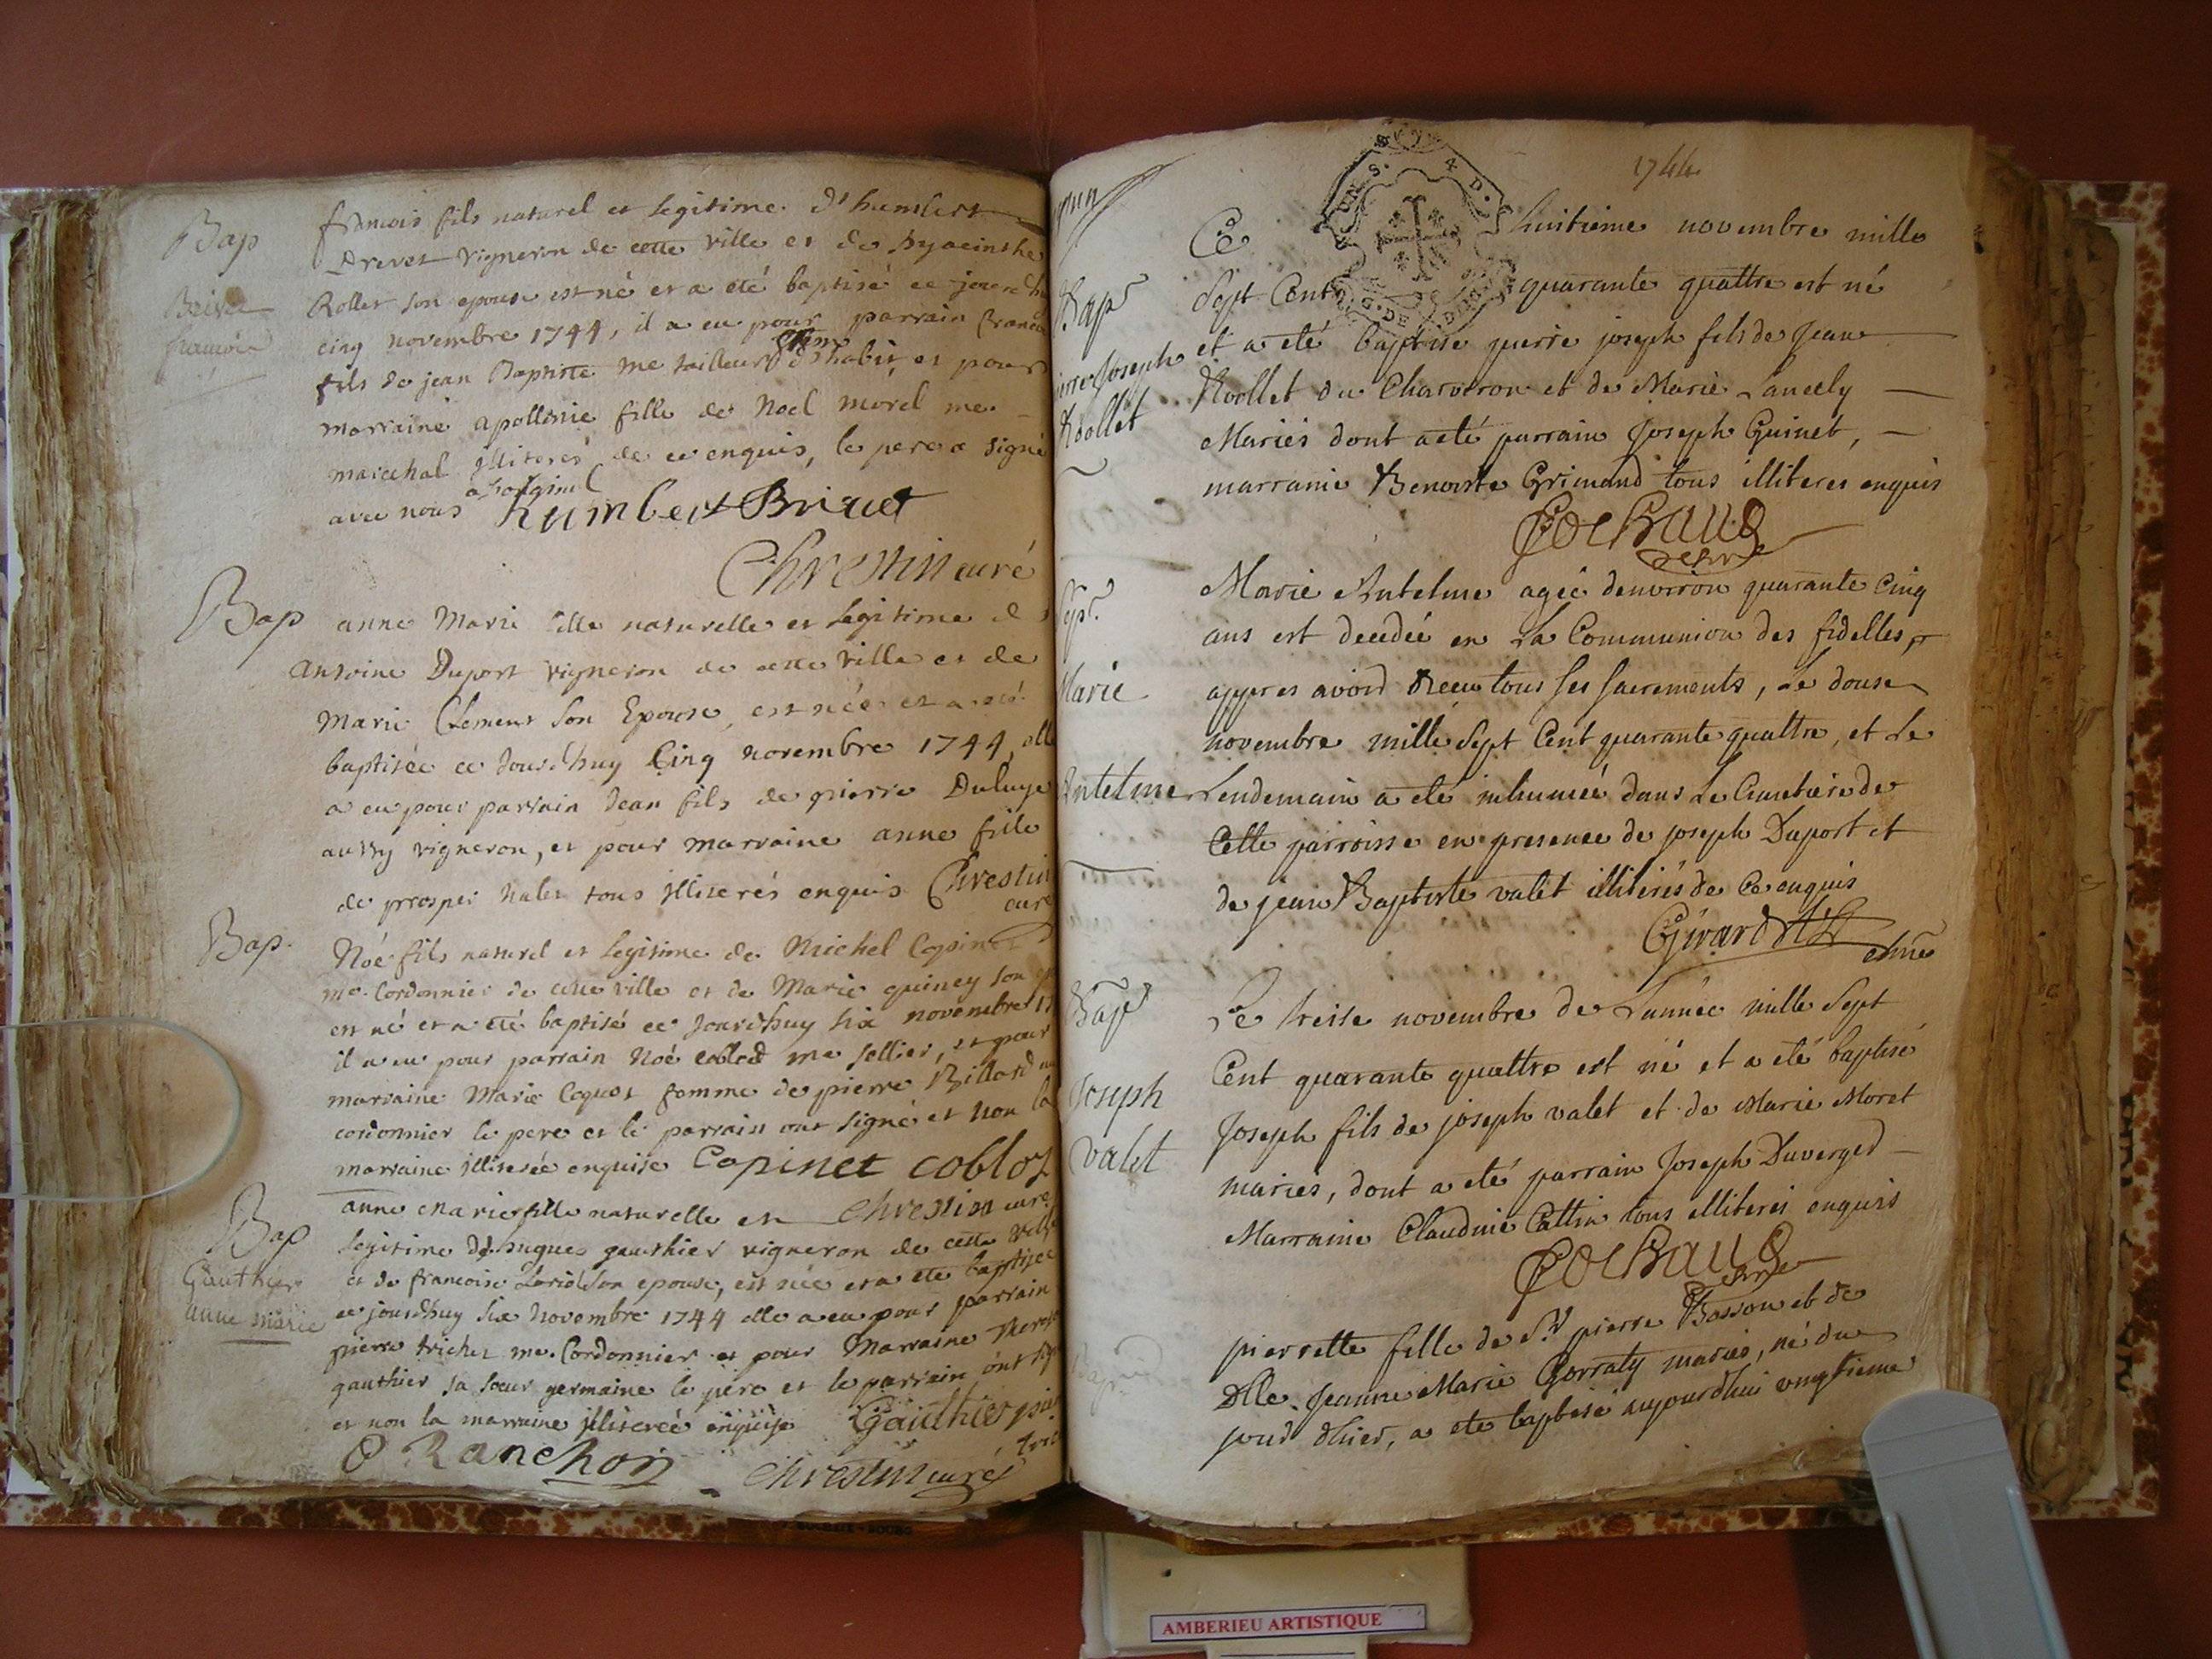 Bap
Brivet
francois
francois fils naturel et legitime d'humbert
Brevet vigneron de cette ville et de hyacinthe
Rollet son epouse est né et a eté baptisé ce jourdh
cinq novembre 1744, il a eu pour parrain francois
fils de jean Baptiste me tailleur d'habit, et pour
marraine apollonie fille de Noel morel me
marechal illiterés de ce enquis, le pere a signé
avec nous a l'original humbert Brivet
Chrestin curé
Bap
anne Marie fille naturelle et legitime d
antoine Duport vigneron de cette ville et de
Marie Clement son Epouse, est née et a eté
baptisée ce jourdhuy Cinq novembre 1744, elle
a eu pour parrain Jean fils de pierre
aussy vigneron, et pour marraine anne fille
de prosper tous illiterés enquis Chrestin
curé
Bap.
Noé fils naturel et legitime de Michel Copinet
me. Cordonnier de cette ville et de Marie quiney son
est né et a eté baptisé ce Jourdhuy six novembre 17
il a eu pour parrain Noé coblod me sellier, et pour
marraine Marie Coquet femme de pierre Billard
cordonnier le pere et le parrain ont signé et non la
marraine illiterée enquise Copinet cobloz
Chrestin curé
Bap
Gauthier
anne marie
anne Marie fille naturelle et
legitime d'hugues gauthier vigneron de cette ville
et de francoise son epouse, est née et a ete baptisée
ce jourdhuy six novembre 1744 elle a eu pour parrain
pierre trichet me. Cordonnier et pour Marraine therese
gauthier sa soeur germaine le pere et le parrain ont
et non la marraine illiterée enquise Gauthier
Ranchon Chrestin curé
1744
GEN. S. 4 D.
G. DE DIJON
Ce huitieme novembre mille
Bapt
Sept Cent quarante quattre est né
ierre Joseph
et a eté baptisé pierre joseph fils de Jean
Roollet
Roollet du Charveron et de Marie Lancely
Mariés dont a eté parrain Joseph Guinet,
marraine Benoiste Grimand tous illiteres enquis
Cochaud
Marie Antelme agée denviron quarante Cinq
ans est decedée en La Communion des fidelles,
Marie
appres avoir Receu tous ses sacrements, Le douse
novembre mille Sept Cent quarante quattre, et Le
Antelme
Lendemain a eté inhumée dans Le Cimetiere de
Cette parroisse en presence de joseph Duport et
de jean Baptiste valet illiterés de Ce enquis
Girard
Bapt
Le treise novembre de Lannée mille Sept
Cent quarante quattre est né et a eté baptisé
Joseph
Joseph fils de joseph valet et de Marie Moret
valet
mariés, dont a eté parrain Joseph Duverger
Marraine Claudine Cattin tous illiterés enquis
Cochaud
Bapt
pierrette fille de Sr pierre Bosson et de
Dlle. Jeanne Marie Gorraty mariés, né du
jour dhier, a ete baptisé aujourdhui vingtieme
AMBERIEU ARTISTIQUE